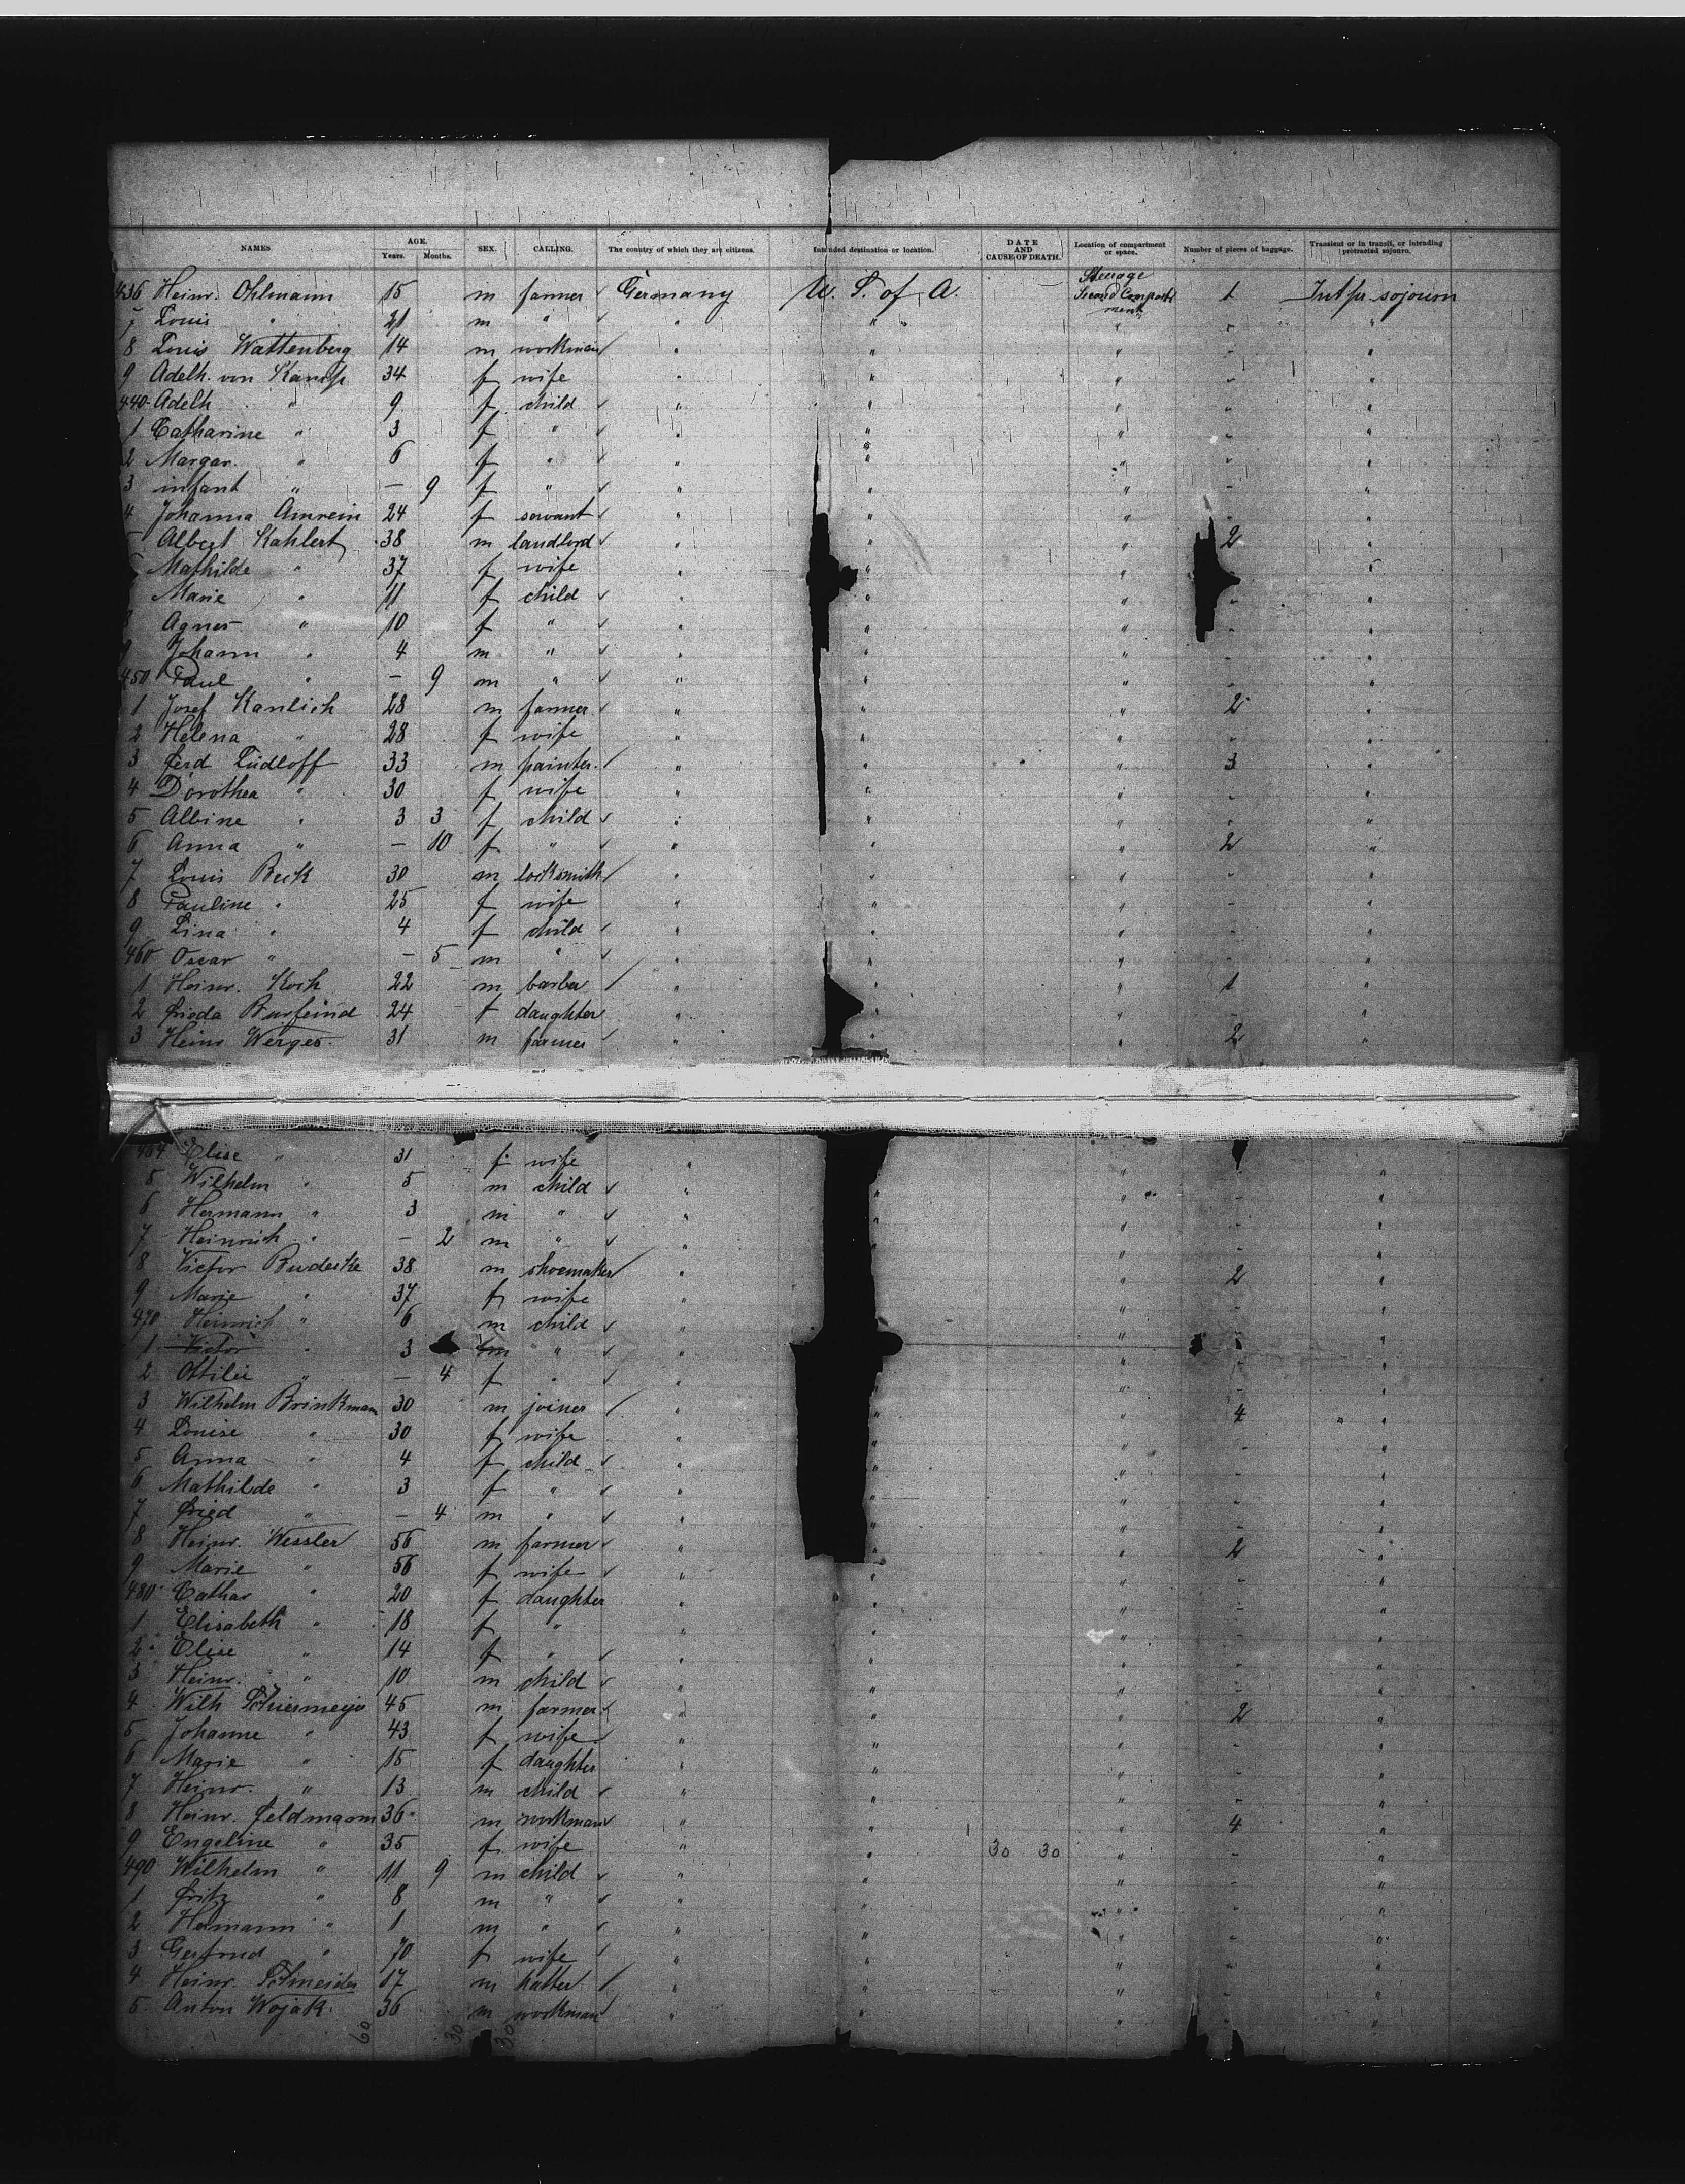 NAMES. AGE. Years. Months. SEX. CALLING. The country of which they are citizens. Intended destination or location. DATE AND CAUSE OF DEATH. Location of compartment or space. Number of pieces of baggage. Transient or in transit, or intending protracted sojourn.
436 Heinr. Ohlmann 15 m farmer Germany U. S. of A. Steerage Second Compartment 1 sojourn
7 Louis " 21 m " " " " " - "
8 Louis Wattenberg 14 m workman " " " - "
9 Adelh. von Kampf 34 f wife " " " - "
440 Adelh " 9 f child " " " " "
1 Catharine " 3 f " " " " - "
2 Margar. " 6 f " " " " - "
3 infant " — 9 f " " " " - "
4 Johanna Amrein 24 f servant " " " - "
Albert Kahlert 38 m landlord " " " 2 "
Mathilde " 37 f wife " " " "
Marie " 11 f child " " " - "
Agnes " 10 f " " " " - "
Johann " 4 m " " " " - "
450 Paul " — 9 m " " " " - "
1 Josef Kanlich 28 m farmer " " " 2 "
2 Helena " 28 f wife " " " " "
3 Ferd Lüdloff 33 m painter " " " 3 "
4 Dorothea " 30 f wife " " " - "
5 Albine " 3 3 f child " " " - "
6 Anna " — 10 f " " " " 2 "
7 Louis Beck 30 m locksmith " " " - "
8 Pauline " 25 f wife " " " - "
9 Lina " 4 f child " " " - "
460 Oscar " — 5 m " " " " - "
1 Heinr. Koch 22 m barber " " " 1 "
2 Frieda Burfeind 24 f daughter " " " - "
3 Heinr Werges 31 m farmer " " 2 "
464 Elise " 31 f wife " " "
5 Wilhelm " 5 m child " " " - "
6 Hermann " 3 m " " " " - "
7 Heinrich " — 2 m " " " " - "
8 Victor Budecke 38 m shoemaker " " 2 "
9 Marie " 37 f wife " " - "
470 Heinrich " 6 m child " " - "
1 Victor " 3 m " " " - "
2 Ottilie " — 4 f " " " " - "
3 Wilhelm Brinkmann 30 m joiner " " " 4 "
4 Louise " 30 f wife " " " - "
5 Anna " 4 f child " " " - "
6 Mathilde " 3 f " " " " - "
7 Fried " — 4 m " " " " - "
8 Heinr. Wessler 56 m farmer " " " 2 "
9 Marie " 56 f wife " " " - "
480 Cathar " 20 f daughter " " " - "
1 Elisabeth " 18 f " " " " - "
2 Elise " 14 f " " " " - "
3 Heinr. " 10 m child " " " - "
4 Wilh Schiermeyer 45 m farmer " " " 2 "
5 Johanne " 43 f wife " " " - "
6 Marie " 15 f daughter " " " - "
7 Heinr. " 13 m child " " " - "
8 Heinr. Feldmann 36 m workman " " " 4 "
9 Engeline " 35 f wife " " 30 30 " - "
490 Wilhelm " 11 9 m child " " " - "
1 Fritz " 8 m " " " " - "
2 Hermann " 1 m " " " " - "
3 Gertrud " 70 f wife " " " - "
4 Heinr. Schneider 17 m hatter " " " - "
5 Anton Wojak 36 m workman " " " " "
60 30 30